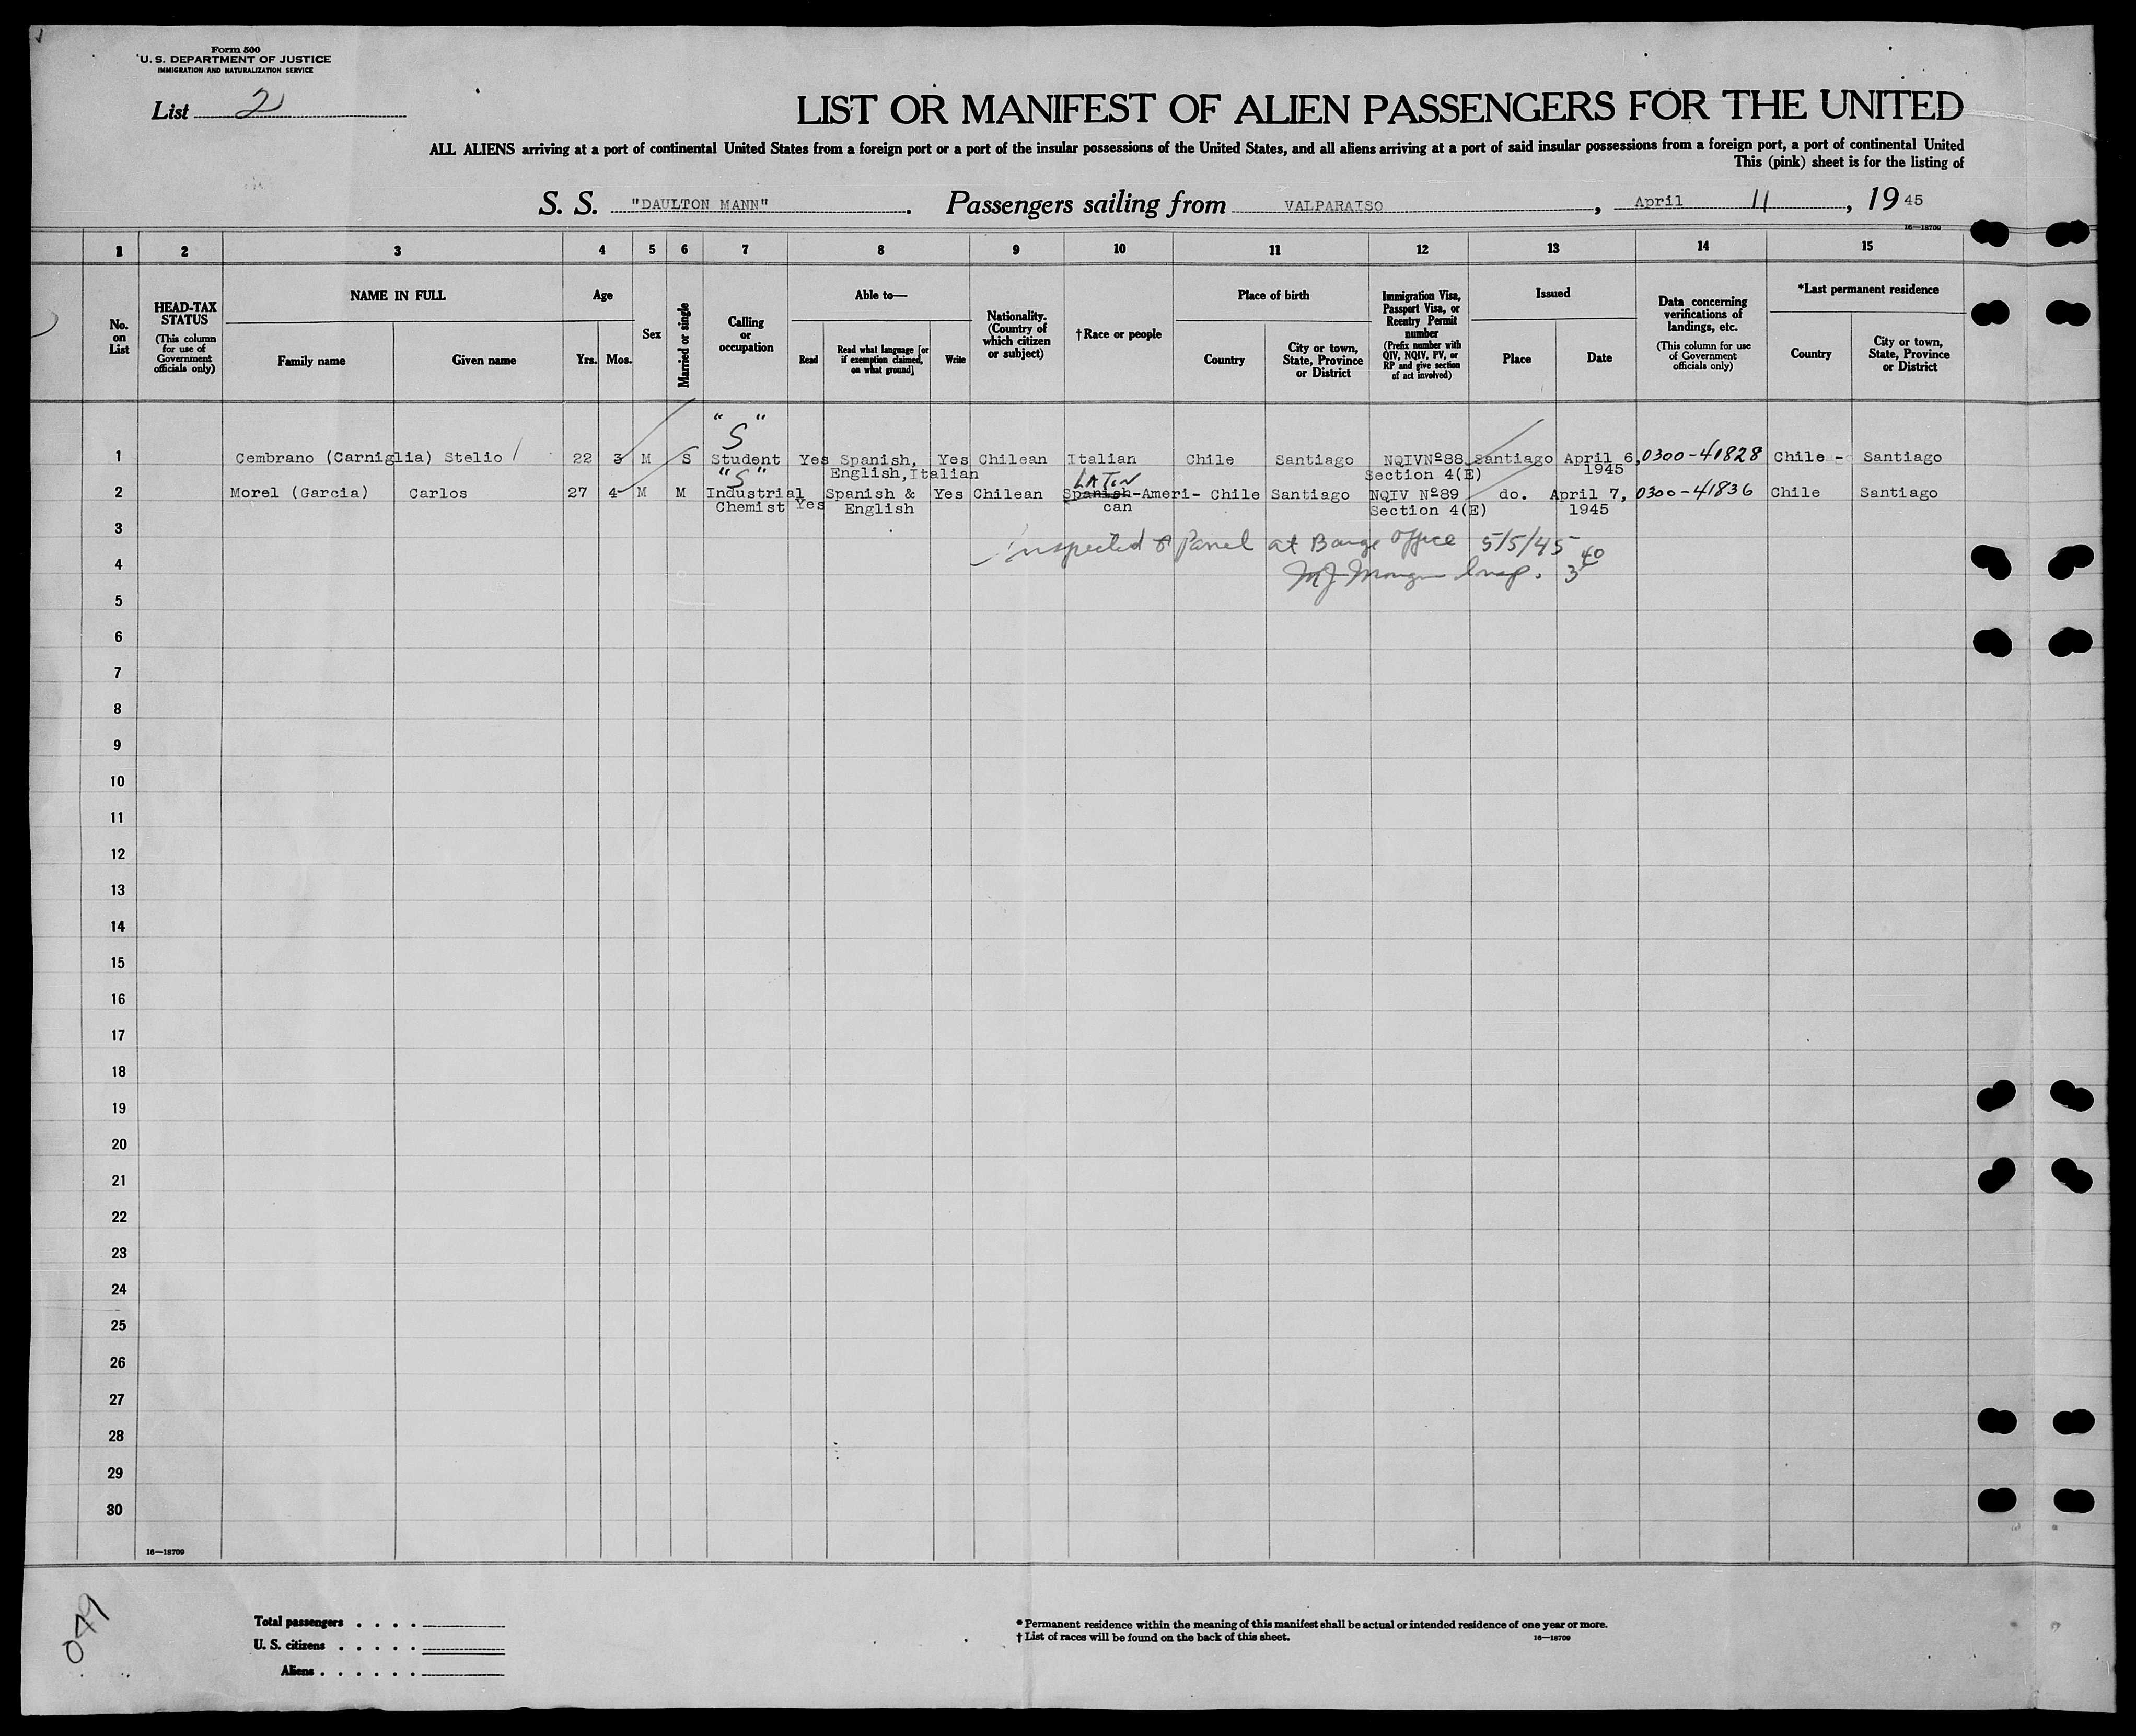 Form 500
U. S. DEPARTMENT OF JUSTICE
IMMIGRATION AND NATURALIZATION SERVICE
List 2
LIST OR MANIFEST OF ALIEN PASSENGERS FOR THE UNITED
ALL ALIENS arriving at a port of continental United States from a foreign port or a port of the insular possessions of the United States, and all aliens arriving at a port of said insular possessions from a foreign port, a port of continental United
This (pink) sheet is for the listing of
S. S. "DAULTON MANN". Passengers sailing from VALPARAISO, April 11, 19 45
16—18709
1 2 3 4 5 6 7 8 9 10 11 12 13 14 15
No. on List
HEAD-TAX STATUS
(This column for use of Government officials only)
NAME IN FULL
Family name
Given name
Age
Yrs. Mos.
Sex
Married or single
Calling or occupation
Able to—
Read
Read what language [or if exemption claimed, on what ground]
Write
Nationality. (Country of which citizen or subject)
†Race or people
Place of birth
Country
City or town, State, Province or District
Immigration Visa, Passport Visa, or Reentry Permit number
(Prefix number with QIV, NQIV, PV, or RP and give section of act involved)
Issued
Place
Date
Data concerning verifications of landings, etc.
(This column for use of Government officials only)
*Last permanent residence
Country
City or town, State, Province or District
"S"
1 Cembrano (Carniglia) Stelio 22 3 M S Student Yes Spanish, Yes Chilean Italian Chile Santiago NQIVNº88 Santiago April 6, 0300-41828 Chile - Santiago
"S" English,Italian LATIN Section 4(E) 1945
2 Morel (Garcia) Carlos 27 4 M M Industrial Yes Spanish & Yes Chilean Spanish-Ameri- Chile Santiago NQIV Nº89 do. April 7, 0300-41836 Chile Santiago
Chemist English can Section 4(E) 1945
3 Inspected & Panel at Barge Office 5/5/45
4 Insp. 3 40
5
6
7
8
9
10
11
12
13
14
15
16
17
18
19
20
21
22
23
24
25
26
27
28
29
30
16—18709
049
Total passengers . . . .
U. S. citizens . . . . .
Aliens . . . . . .
* Permanent residence within the meaning of this manifest shall be actual or intended residence of one year or more.
† List of races will be found on the back of this sheet. 16—18709